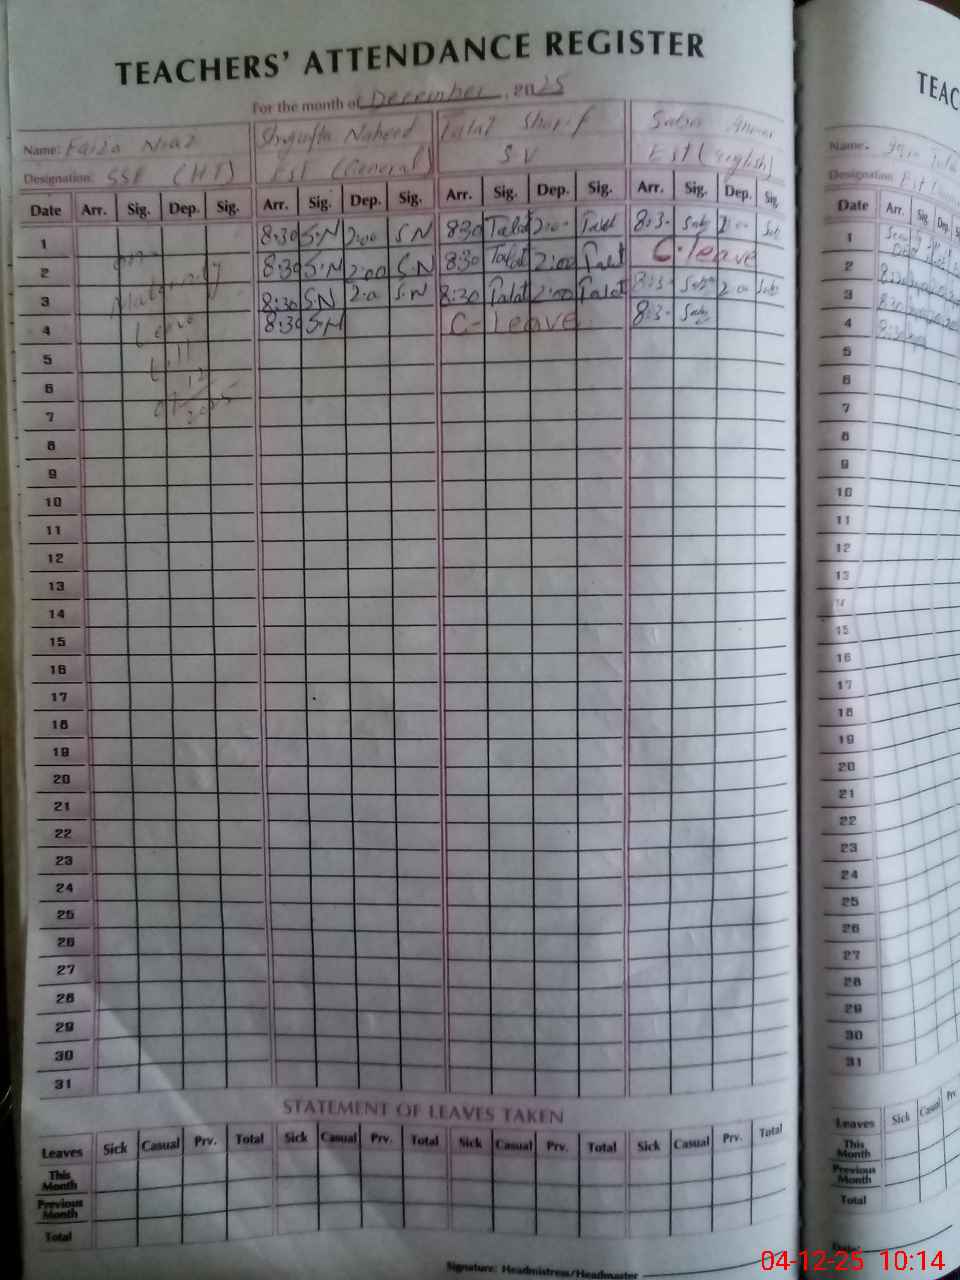 TEACHERS' ATTENDANCE REGISTER
For the month of December, 2025
Name: Faiza Niaz Shgufta Naheed Talat Sharif Saba
Designation: SSE (HT) Est (General) SV Est (english)
Date Arr. Sig. Dep. Sig. Arr. Sig. Dep. Sig. Arr. Sig. Dep. Sig. Arr. Sig. Dep. Sig.
1 8:30 S.N 2:00 S.N 8:30 Talat 2:00 Talat 8:3- 
2 on 8:30 S.N 2:00 S.N 8:30 Talat 2:00 Talat C-leave
3 Maternity 8:30 S.N 2:0 S.N 8:30 Talat 2:00 Talat 8:3-
4 Leave 8:30 S.N C-Leave 8:3-
5
6
7 2025
8
9
10
11
12
13
14
15
16
17
18
19
20
21
22
23
24
25
26
27
28
29
30
31
STATEMENT OF LEAVES TAKEN
Leaves Sick Casual Prv. Total Sick Casual Prv. Total Sick Casual Prv. Total Sick Casual Prv. Total
This Month
Previous Month
Total
Signature: Headmistress/Headmaster
TEAC
Name.
Designation
Date Arr. Sig. Dep. Sig.
1
2
3
4
5
6
7
8
9
10
11
12
13
14
15
16
17
18
19
20
21
22
23
24
25
26
27
28
29
30
31
Leaves Sick Casual Prv.
This Month
Previous Month
Total
Date:
04-12-25 10:14